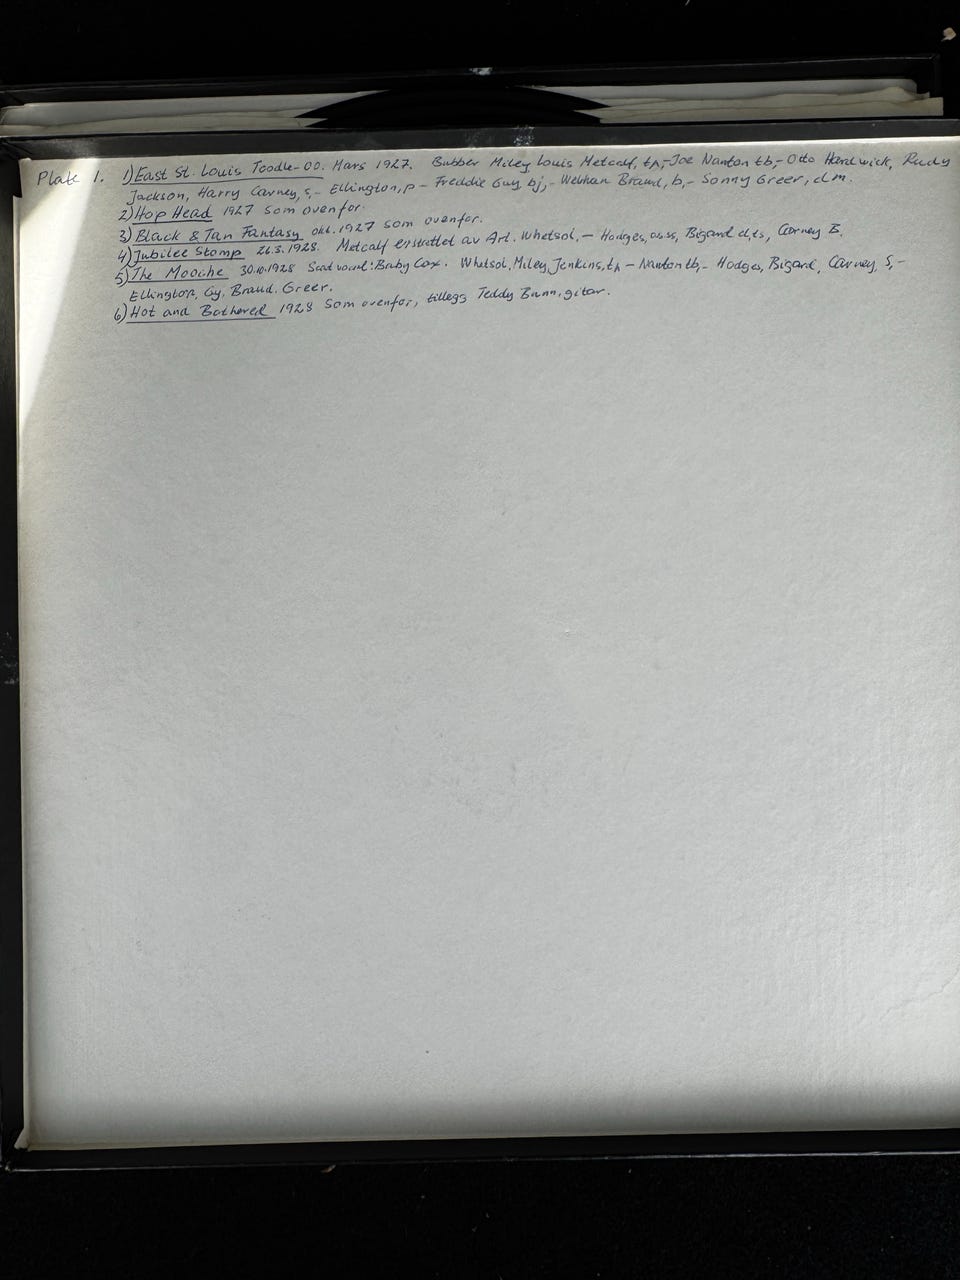 Plate 1. 1) East St. Louis Toodle-oo. Mars 1927. Bubber Miley, Louis Metcalf, tp,- Joe Nanton tb,- Otto Hardwick, Rudy
Jackson, Harry Carney, s,- Ellington, p - Freddie Guy, bj,- Wellman Braud, b,- Sonny Greer, dm.
2) Hop Head 1927 som ovenfor.
3) Black & Tan Fantasy okt. 1927 som ovenfor.
4) Jubilee Stomp 26.3.1928. Metcalf erstattet av Art. Whetsol, - Hodges, as, ss, Bigard cl, ts, Carney B.
5) The Mooche 30.10.1928 Scat vocal: Baby Cox. Whetsol, Miley, Jenkins, tp - Nanton tb,- Hodges, Bigard, Carney, S,-
Ellington, Gy, Braud, Greer.
6) Hot and Bothered 1928 Som ovenfor, tillegg Teddy Bunn, gitar.